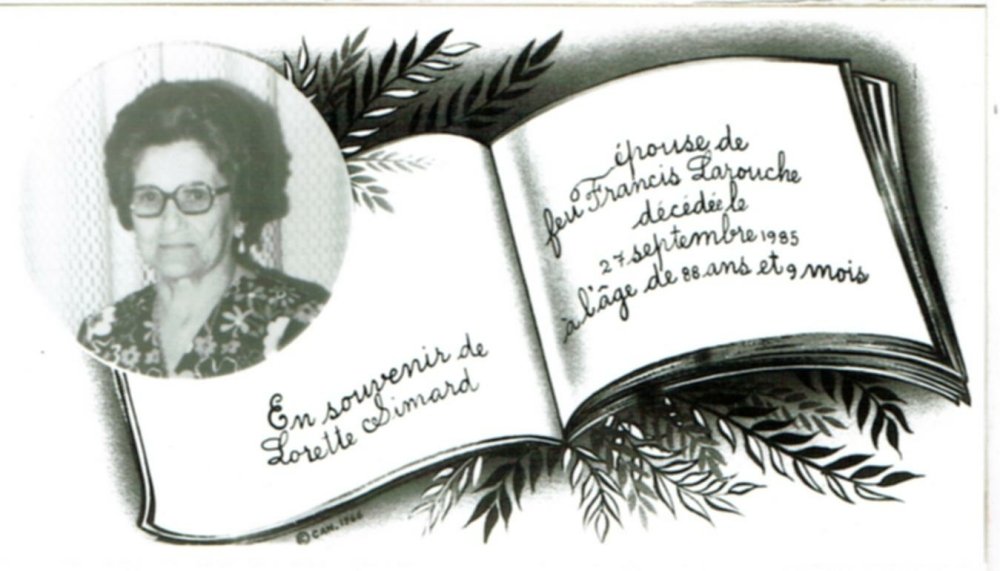 En souvenir de
Lorette Simard
épouse de
feu Francis Larouche
décédée le
27 septembre 1985
à l'âge de 88 ans et 9 mois
© CAN. 1966